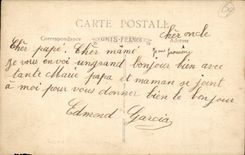 CARTE POSTALE
Cher oncle
Correspondance
Adresse
Cher papé. Cher mamé
Je vous envoi un grand bonjour bien avec
tante Marie papa et maman se joint
à moi pour vous donner bien le bonjour
Edmond Garcia